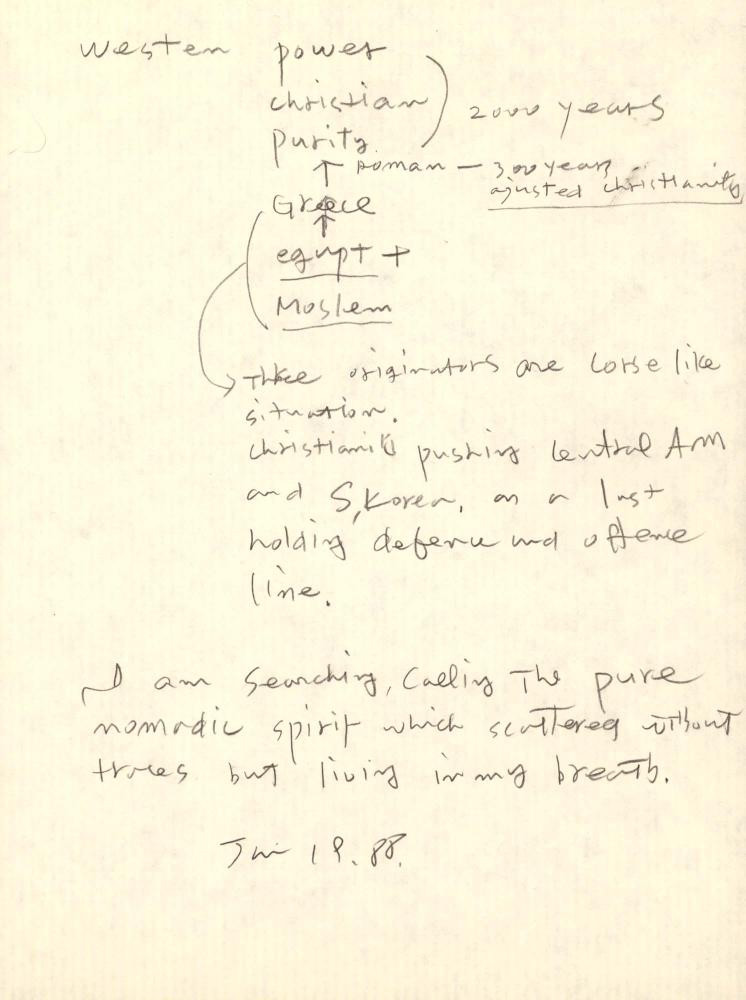 Westen power
christian
purity
2000 years
↑ Roman — 300 years
ajusted christianity
Greece
↑
egypt +
Moslem
Three originators are corse like
situation.
christianity pushing central Am
and S, Korea, as a last
holding defence and offence
line.
I am searching, calling The pure
nomadic spirit which scattered without
traces but living in my breath.
Jan 19. 88.